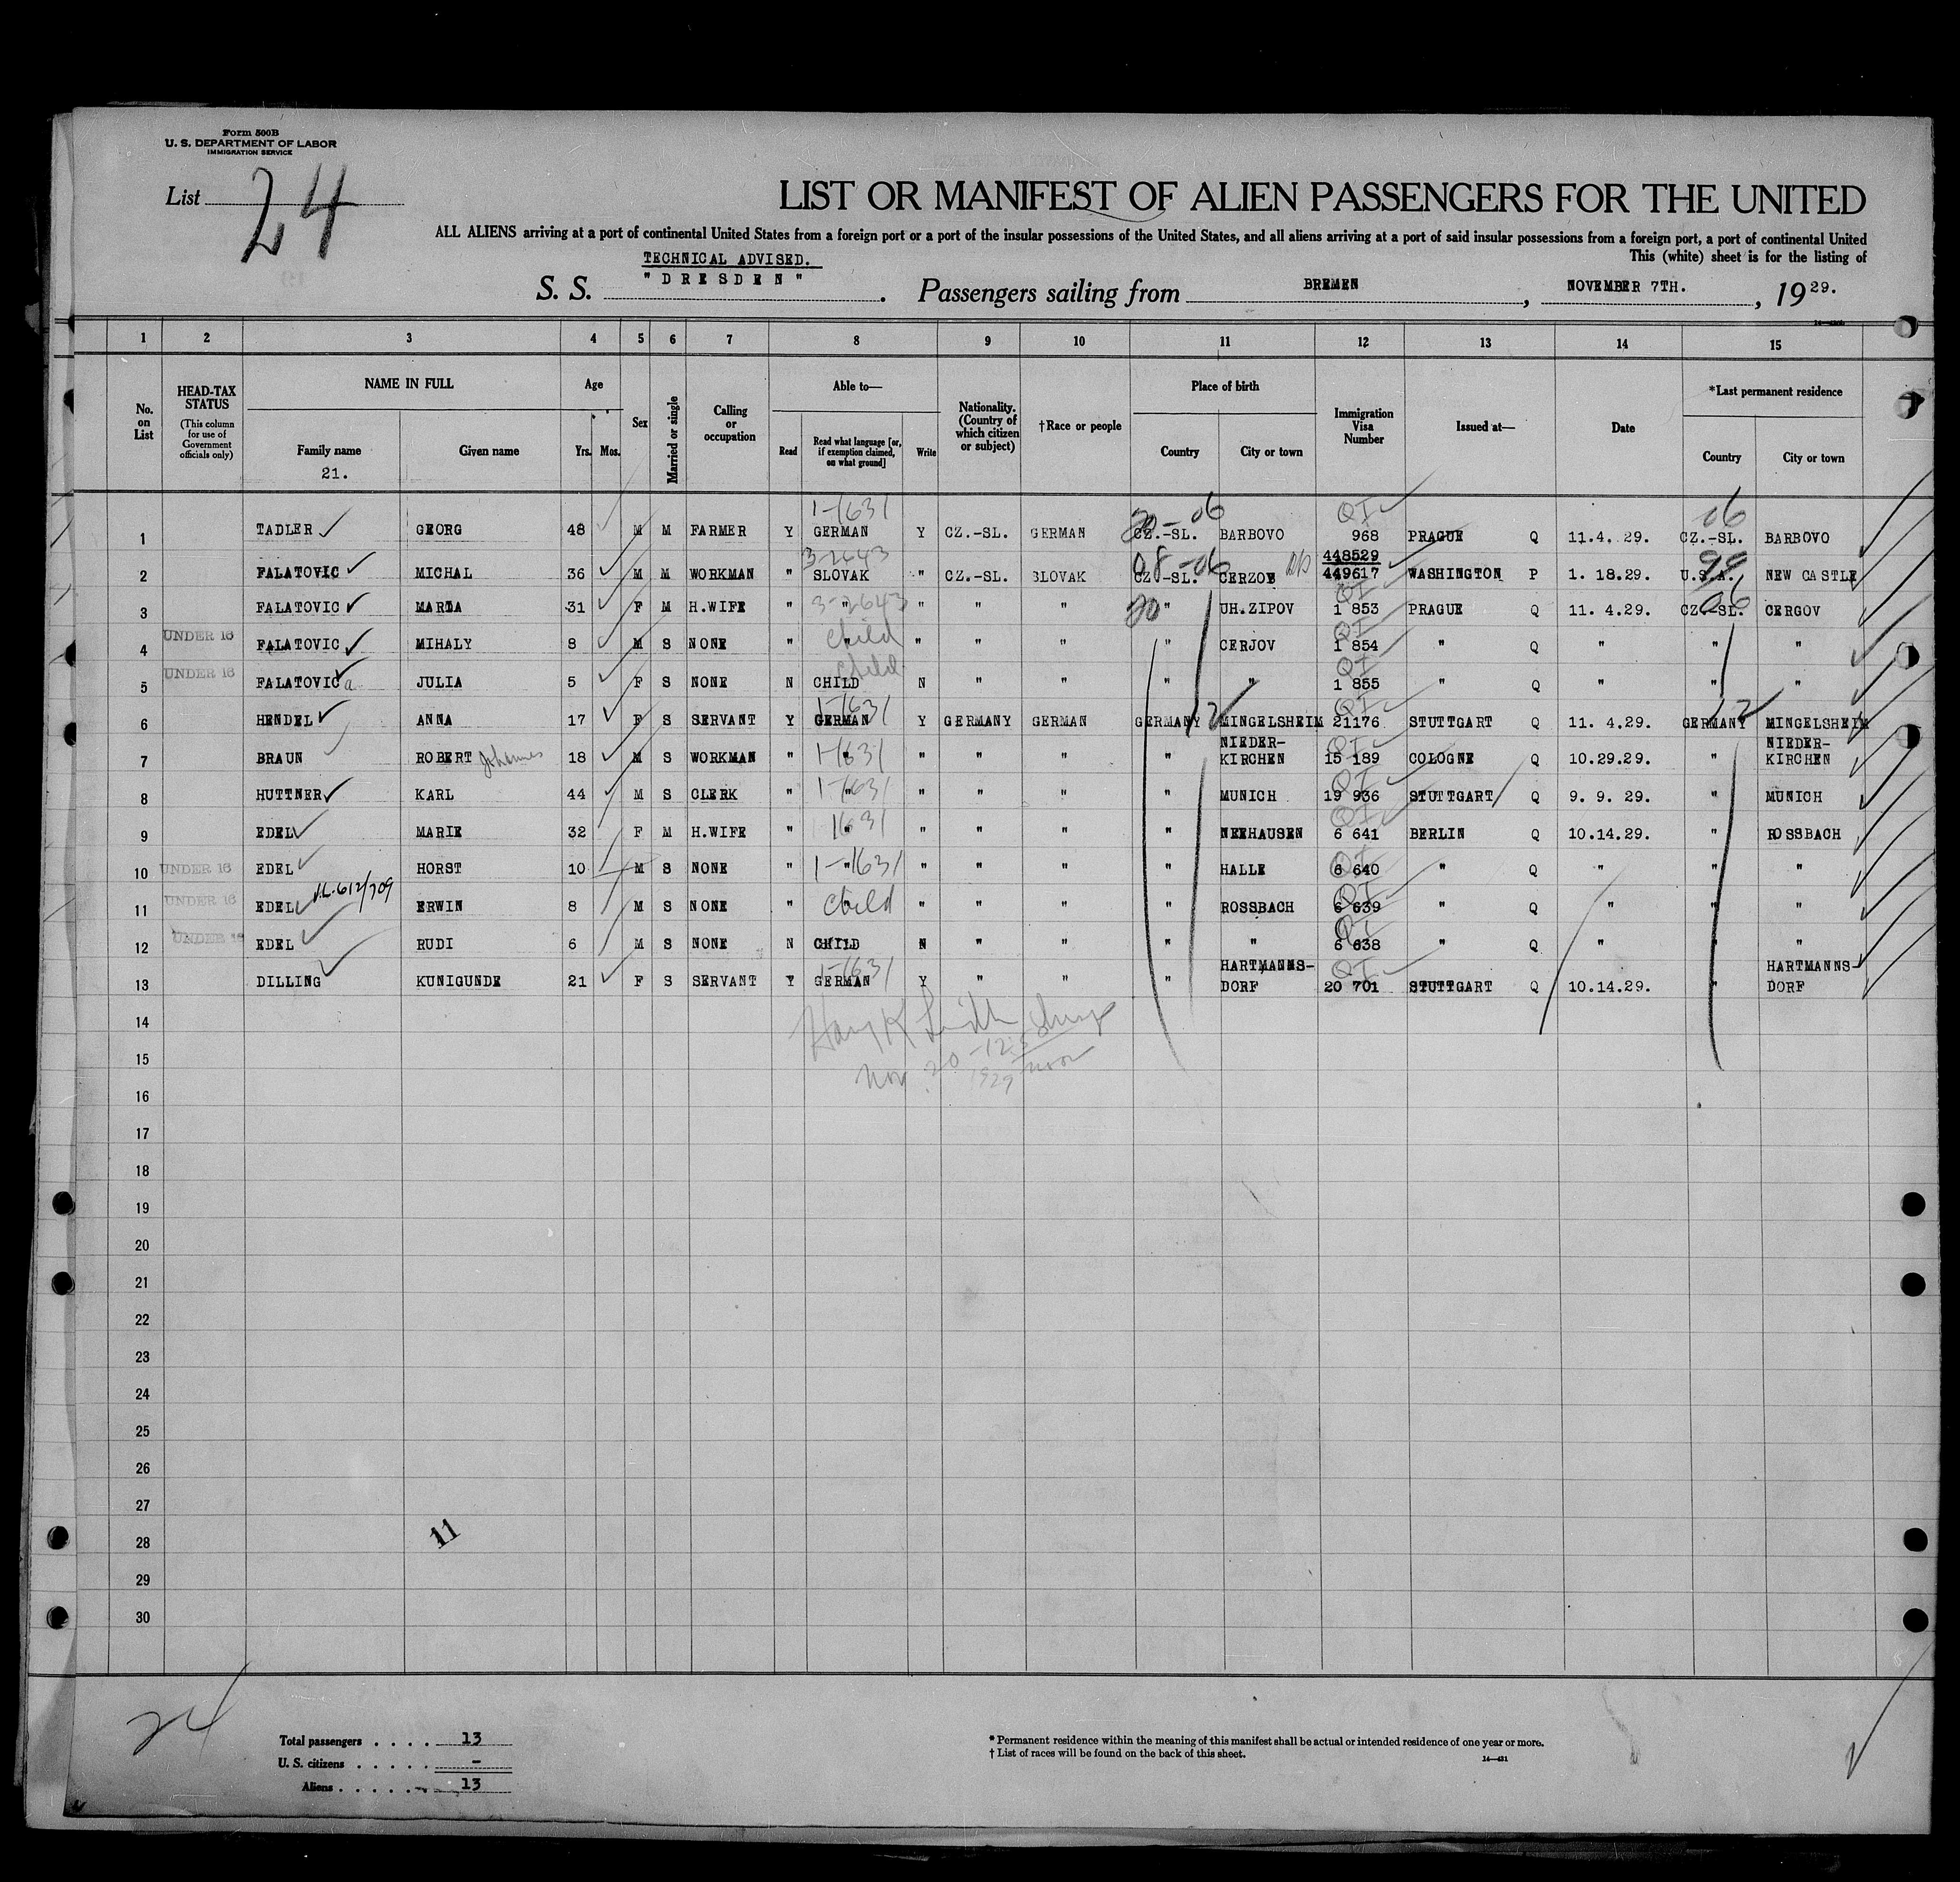 Form 500B
U. S. DEPARTMENT OF LABOR
IMMIGRATION SERVICE
List 24
LIST OR MANIFEST OF ALIEN PASSENGERS FOR THE UNITED
ALL ALIENS arriving at a port of continental United States from a foreign port or a port of the insular possessions of the United States, and all aliens arriving at a port of said insular possessions from a foreign port, a port of continental United
This (white) sheet is for the listing of
TECHNICAL ADVISED.
S. S. "DRESDEN". Passengers sailing from BREMEN, NOVEMBER 7TH., 1929.
1 2 3 4 5 6 7 8 9 10 11 12 13 14 15
No. on List
HEAD-TAX STATUS (This column for use of Government officials only)
NAME IN FULL
Family name
21.
Given name
Age
Yrs. Mos.
Sex
Married or single
Calling or occupation
Able to—
Read
Read what language [or, if exemption claimed, on what ground]
Write
Nationality. (Country of which citizen or subject)
†Race or people
Place of birth
Country
City or town
Immigration Visa Number
Issued at—
Date
*Last permanent residence
Country
City or town
1-1631 20-06 QI 06
1 TADLER GEORG 48 M M FARMER Y GERMAN Y CZ.-SL. GERMAN CZ.-SL. BARBOVO 968 PRAGUE Q 11.4. 29. CZ.-SL. BARBOVO
3-2643 08-06 448529 99
2 FALATOVIC MICHAL 36 M M WORKMAN " SLOVAK " CZ.-SL. SLOVAK CZ.-SL. CERZOE 449617 WASHINGTON P 1. 18.29. U.S.A. NEW CASTLE
3-2643 20 QI 06
3 FALATOVIC MARIA 31 F M H.WIFE " " " " " " UH.ZIPOV 1 853 PRAGUE Q 11. 4.29. CZ.-SL. CERGOV
UNDER 16 Child QI
4 FALATOVIC MIHALY 8 M S NONE " " " " " CERJOV 1 854 " Q " " "
UNDER 16 Child QI
5 FALATOVIC a JULIA 5 F S NONE N CHILD N " " " 1 855 " Q " " "
1-1631 12 QI 12
6 HENDEL ANNA 17 F S SERVANT Y GERMAN Y GERMANY GERMAN GERMANY MINGELSHEIM 21176 STUTTGART Q 11. 4.29. GERMANY MINGELSHEIM
7 BRAUN ROBERT Johannes 18 M S WORKMAN " 1-1631 " " " " NIEDER-KIRCHEN QI 15 189 COLOGNE Q 10.29.29. " NIEDER-KIRCHEN
8 HUTTNER KARL 44 M S CLERK " 1-1631 " " " " MUNICH QI 19 936 STUTTGART Q 9. 9. 29. " MUNICH
9 EDEL MARIE 32 F M H.WIFE " 1631 " " " " NEEHAUSEN QI 6 641 BERLIN Q 10.14.29. " ROSSBACH
10 UNDER 16 EDEL HORST 10 M S NONE " 1-1631 " " " " HALLE QI 6 640 " Q " " "
11 UNDER 16 EDEL ERWIN 8 M S NONE " Child " " " " ROSSBACH QI 6 639 " Q " " "
12 UNDER 16 EDEL RUDI 6 M S NONE N CHILD N " " " " QI 6 638 " Q " " "
13 DILLING KUNIGUNDE 21 F S SERVANT Y 1-1631 GERMAN Y " " " HARTMANNS-DORF QI 20 701 STUTTGART Q 10.14.29. " HARTMANNS-DORF
14
15 Nov. 20 1929 noon
16
17
18
19
20
21
22
23
24
25
26
27
28 11
29
30
24
Total passengers . . . . 13
U. S. citizens . . . . . –
Aliens . . . . . . 13
* Permanent residence within the meaning of this manifest shall be actual or intended residence of one year or more.
† List of races will be found on the back of this sheet.